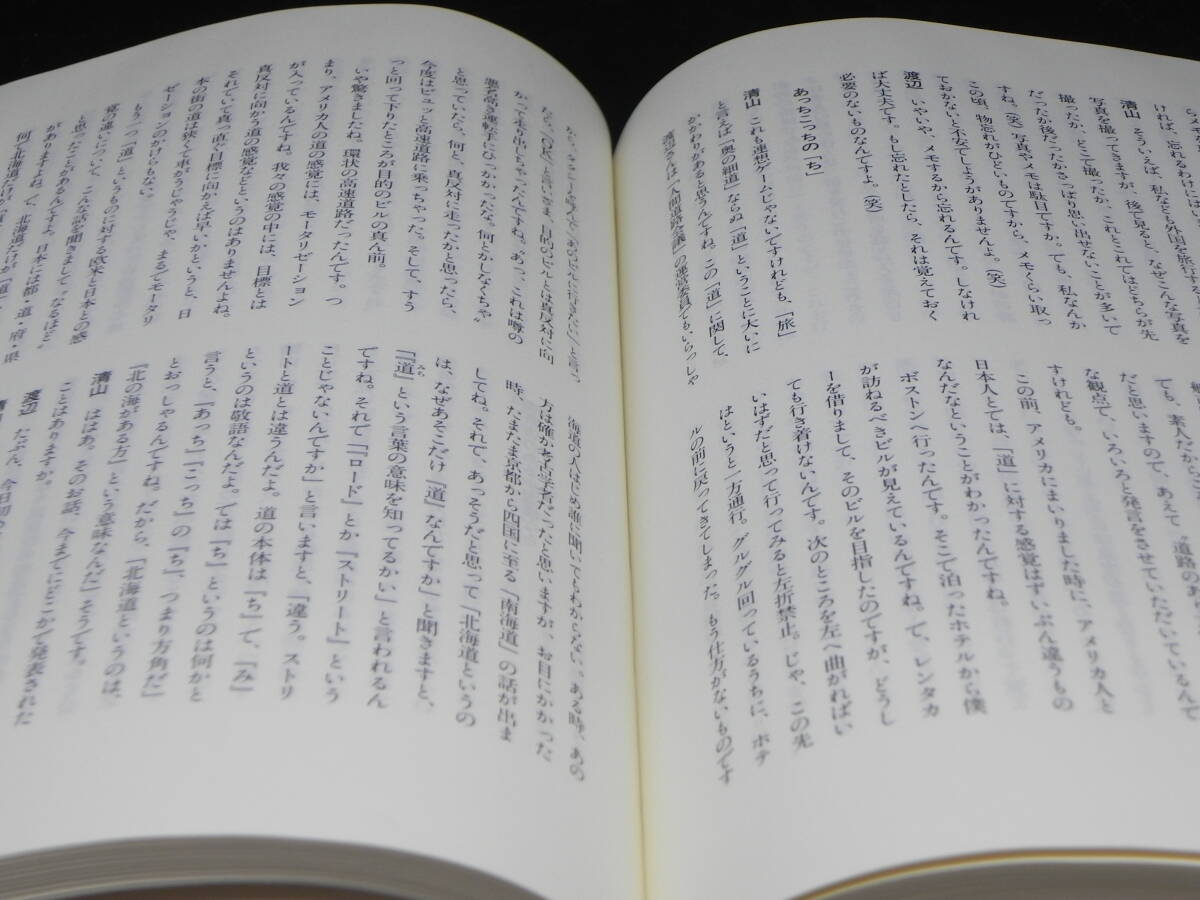 ければ、忘れるわけには
清山　そういえば、私なども外国を旅行する
写真を撮ってきますが、後で見ると、なぜこんな写真を
撮ったか、どこで撮ったか、これとこれではどちらが先
だったか後だったかさっぱり思い出せないことが多いで
すね。（笑）写真やメモは駄目ですか。でも、私なんか
この頃、物忘れがひどいものですから、メモくらい取っ
ておかないと不安でしようがありませんよ。（笑）
渡辺　いやいや、メモするから忘れるんです。しなけれ
ば大丈夫です。もし忘れたとしたら、それは覚えておく
必要のないものなんですよ。（笑）
あっちこっちの「ち」
清山　これも連想ゲームじゃないですけれども、「旅」
と言えば「奥の細道」ならぬ「道」ということに大いに
かかわりがあると思うんですね。この「道」に関して、
渡辺さんは「人間道路会議」の運営委員でもいらっしゃ
ても、素人だか
だと思いますので、あえて〝道路のあ
な観点で、いろいろと発言をさせていただいているんで
すけれども。
この前、アメリカにまいりました時に、アメリカ人と
日本人とでは、「道」に対する感覚はずいぶん違うもの
なんだなということがわかったんですね。
ボストンへ行ったんです。そこで泊ったホテルから僕
が訪ねるべきビルが見えているんですね。で、レンタカ
ーを借りまして、そのビルを目指したのですが、どうし
ても行き着けないんです。次のところを左へ曲がればい
いはずだと思って行ってみると左折禁止。じゃ、この先
はというと一方通行。グルグル回っているうちに、ホテ
ルの前に戻ってきてしまった。もう仕方がないものです
たら、「OK」と言いざま、目的のビルとは真反対に向
かって走り出しちゃったんですね。あっ、これは噂の
悪名高き運転手にひっかかったな。何とかしなくちゃ〟
と思っていたら、何と、真反対に走ったかと思ったら、
今度はビュッと高速道路に乗っちゃった。そして、すう
っと回って下りたところが目的のビルの真ん前。
いや驚きましたね。環状の高速道路だったんです。つ
まり、アメリカ人の道の感覚には、モータリゼーション
が入っているんですね。我々の感覚の中には、目標とは
真反対に向かう道の感覚などというのはありませんよね。
それでいて真っ直ぐ目標に向かえば早いかというと、日
本の街の道は狭くて車がうじゃうじゃ、まるでモータリ
ゼーションのかけらもない。
もう一つ「道」というものに対する欧米と日本との感
覚の違いについて、こんな話を聞きまして〝なるほど〟
と思ったことがあるんですよ。日本には都・道・府・県
がありますよね。で、北海道だけが「道」
何で北海道だけが
海道の人はじめ誰に聞いてもわからない。ある時、あの
方は確か考古学者だったと思いますが、お目にかかった
時、たまたま京都から四国に至る「南海道」の話が出ま
してね。それで、あっそうだと思って「北海道というの
は、なぜあそこだけ『道』なんですか」と聞きますと、
「『道』という言葉の意味を知ってるかい」と言われるん
ですね。それで「『ロード』とか『ストリート』という
ことじゃないんですか」と言いますと、「違う。ストリ
ートと道とは違うんだよ。道の本体は『ち』で、『み』
というのは敬語なんだよ。では『ち』というのは何かと
言うと、『あっち』『こっち』の『ち』、つまり方角だ」
とおっしゃるんですね。だから、「北海道というのは、
『北の海がある方』という意味なんだ」そうです。
清山　ははあ。そのお話、今までにどこかで発表された
ことはありますか。
渡辺　たぶん、今日初め